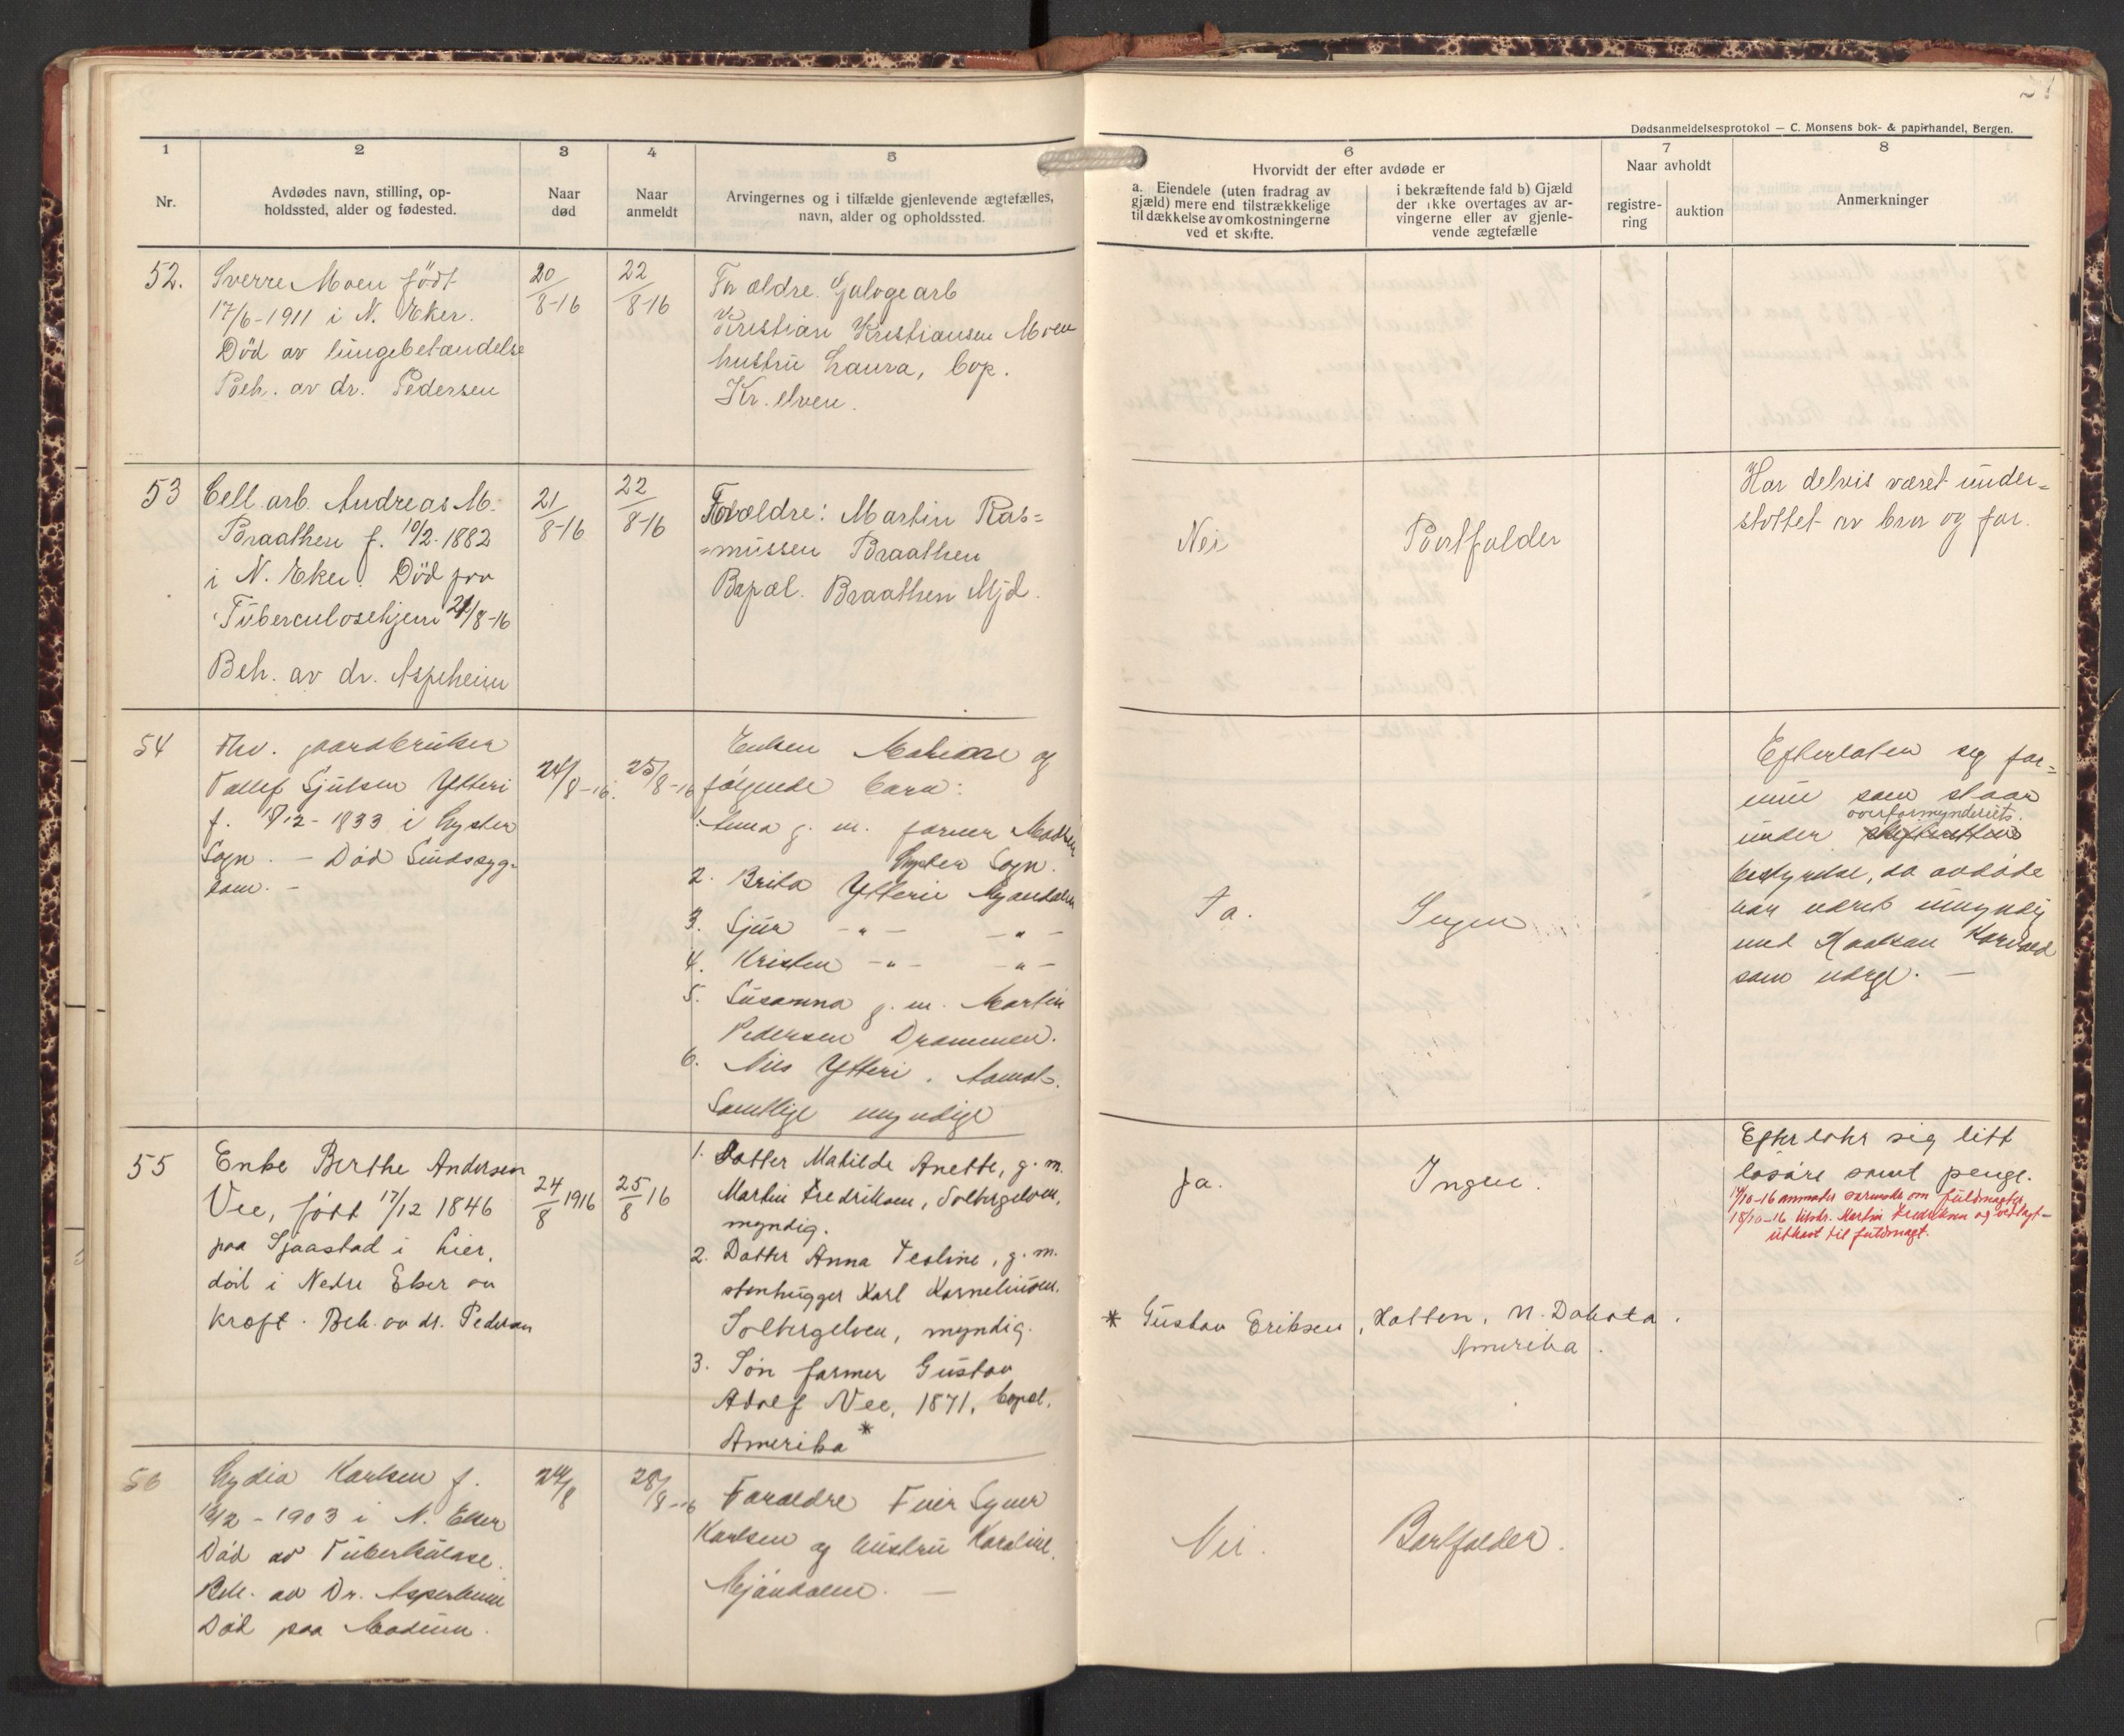 Dødsanmeldelsesprotokol — C. Monsens bok- & papirhandel, Bergen.
1
Nr.
2
Avdødes navn, stilling, op-
holdssted, alder og fødested.
3
Naar
død
4
Naar
anmeldt
5
Arvingernes og i tilfælde gjenlevende ægtefælles,
navn, alder og opholdssted.
6
Hvorvidt der efter avdøde er
a. Eiendele (uten fradrag av
gjæld) mere end tilstrækkelige
til dækkelse av omkostningerne
ved et skifte.
i bekræftende fald b) Gjæld
der ikke overtages av ar-
vingerne eller av gjenle-
vende ægtefælle
7
Naar avholdt
registre-
ring
auktion
8
Anmerkninger
52.
Sverre Moen født
17/6-1911 i N. Eker.
Död av lungebetændelse
Beh. av dr. Pedersen
20/8-16
22/8-16
Forældre
Kristian Kristiansen Moen
hustru Laura, bop.
Kr. elven.
53
Cell. arb. Andreas M.
Braathen f. 10/2-1882
i N. Eker. Död paa
Tuberculosehjem 21/8-16
Beh. av dr. Aspeheim
21/8-16
22/8-16
Forældre: Martin Ras=
=mussen Braathen
Bopæl. Braathen Mjd.
Nei
Bortfalder
Har delvis været under=
støttet av bror og far.
54
Fhv. gaardbruker
Tollef Sjulsen Ytteri
f. 18/12-1833 i Lyster
Sogn. — Död Sindssyg-
dom. —
24/8-16.
25/8-16
Enken og
følgende barn:
1. Anna g. m. farmer
Lyster Sogn.
2. Brita Ytterie Mjøndalen
3. Sjur —"— —"—
4. Kristen —"— —"—
5. Susanna g. m. Martin
Pedersen Drammen.
6. Nils Ytteri. Aamot.
Samtlige myndige
Ja.
Ingen
Efterlater sig for=
mue som staar
overformynderiets.
under
bestyrelse, da avdøde
har været umyndig
med Korvald
som verge. —
55
Enke Berthe Andersen
Vee, født 17/12 1846
paa Sjaastad i Lier,
död i Nedre Eker av
kræft. Beh. av dr. Pedersen
24/8 1916
25/8 16
1. Datter Matilde Anette, g. m.
Martin Fredriksen, Solbergelven,
myndig.
2. Datter Anna Teoline, g. m.
stenhugger Karl Korneliusen,
Solbergelven, myndig.
3. Søn farmer Gustav
Adolf Vee, 1871, bopæl.
Amerika *
Ja.
Ingen.
Efterlater sig litt
løsøre samt penge.
14/10-16 anmodet om fuldmagter
18/10-16 tilskr. Martin Fredriksen og vedlagt
utkast til fuldmagt.
* Gustav Eriksen, Hatten, N. Dakota.
Amerika.
56
Lydia Karlsen f.
18/2-1903 i N. Eker
Død av Tuberkulose.
Beh. av Dr. Aspeheim
Død paa Modum.
24/8
28/8-16
Forældre
Karlsen og hustru Karoline.
Mjöndalen. —
Nei.
Bortfalder.